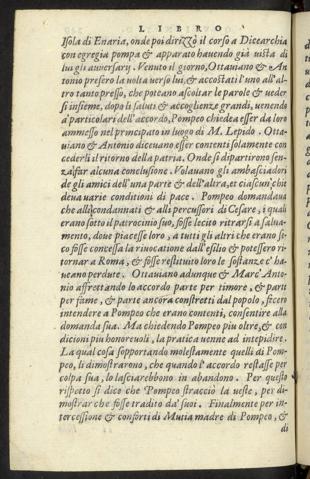 LIBRO
Isola di Enaria, onde poi dirizzò il corso a Dicearchia
con egregia pompa & apparato hauendo già uista di
lui gli auuersarij. Venuto il giorno, Ottauiano & An
tonio presero la uolta uerso lui, & accostati l'uno all'al-
tro tanto presso, che poteano ascoltar le parole & ueder
si insieme, dopo li saluti & accoglienze grandi, uenendo
a' particolari dell'accordo, Pompeo chiedea esser da loro
ammesso nel principato in luogo di M. Lepido. Otta-
uiano & Antonio diceuano esser contenti solamente con
cederli il ritorno della patria. Onde si dipartirono sen-
za far alcuna conclusione. Volauano gli ambasciadori
de gli amici dell'una parte & dell'altra, et ciascun chie
deua uarie conditioni di pace. Pompeo domandaua
che alli condannati & alli percussori di Cesare, i quali
erano sotto il patrocinio suo, fosse lecito ritrarsi a salua-
mento, doue piacesse loro, a tutti gli altri che erano si-
co fosse concessa la riuocatione dall'esilio & potessero ri-
tornar a Roma, & fosse restituito loro le sostanze c'ha-
ueano perdute. Ottauiano adunque & Marc' Anto-
nio affrettando lo accordo parte per timore, & parte
per fame, & parte ancora constretti dal popolo, fecero
intendere a Pompeo che erano contenti, consentire alla
domanda sua. Ma chiedendo Pompeo piu oltre, & con
dictioni piu honoreuoli, la pratica uenne ad intepidire.
La qual cosa sopportando molestamente quelli di Pom-
peo, li dimostrarono, che quando l'accordo restasse per
colpa sua, lo lasciarebbono in abandono. Per questo
rispetto si dice che Pompeo stracciò la ueste, per di-
mostrar che fosse tradito da' suoi. Finalmente per in-
tercessione & conforti di Mutia madre di Pompeo, &
di